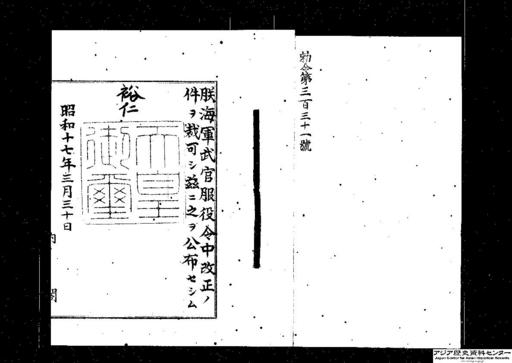 勅令第三百三十一號
朕海軍武官服役令中改正ノ
件ヲ裁可シ茲ニ之ヲ公布セシム
裕仁
天皇
御璽
昭和十七年三月三十日
内閣
アジア歴史資料センター
Japan Center for Asian Historical Records